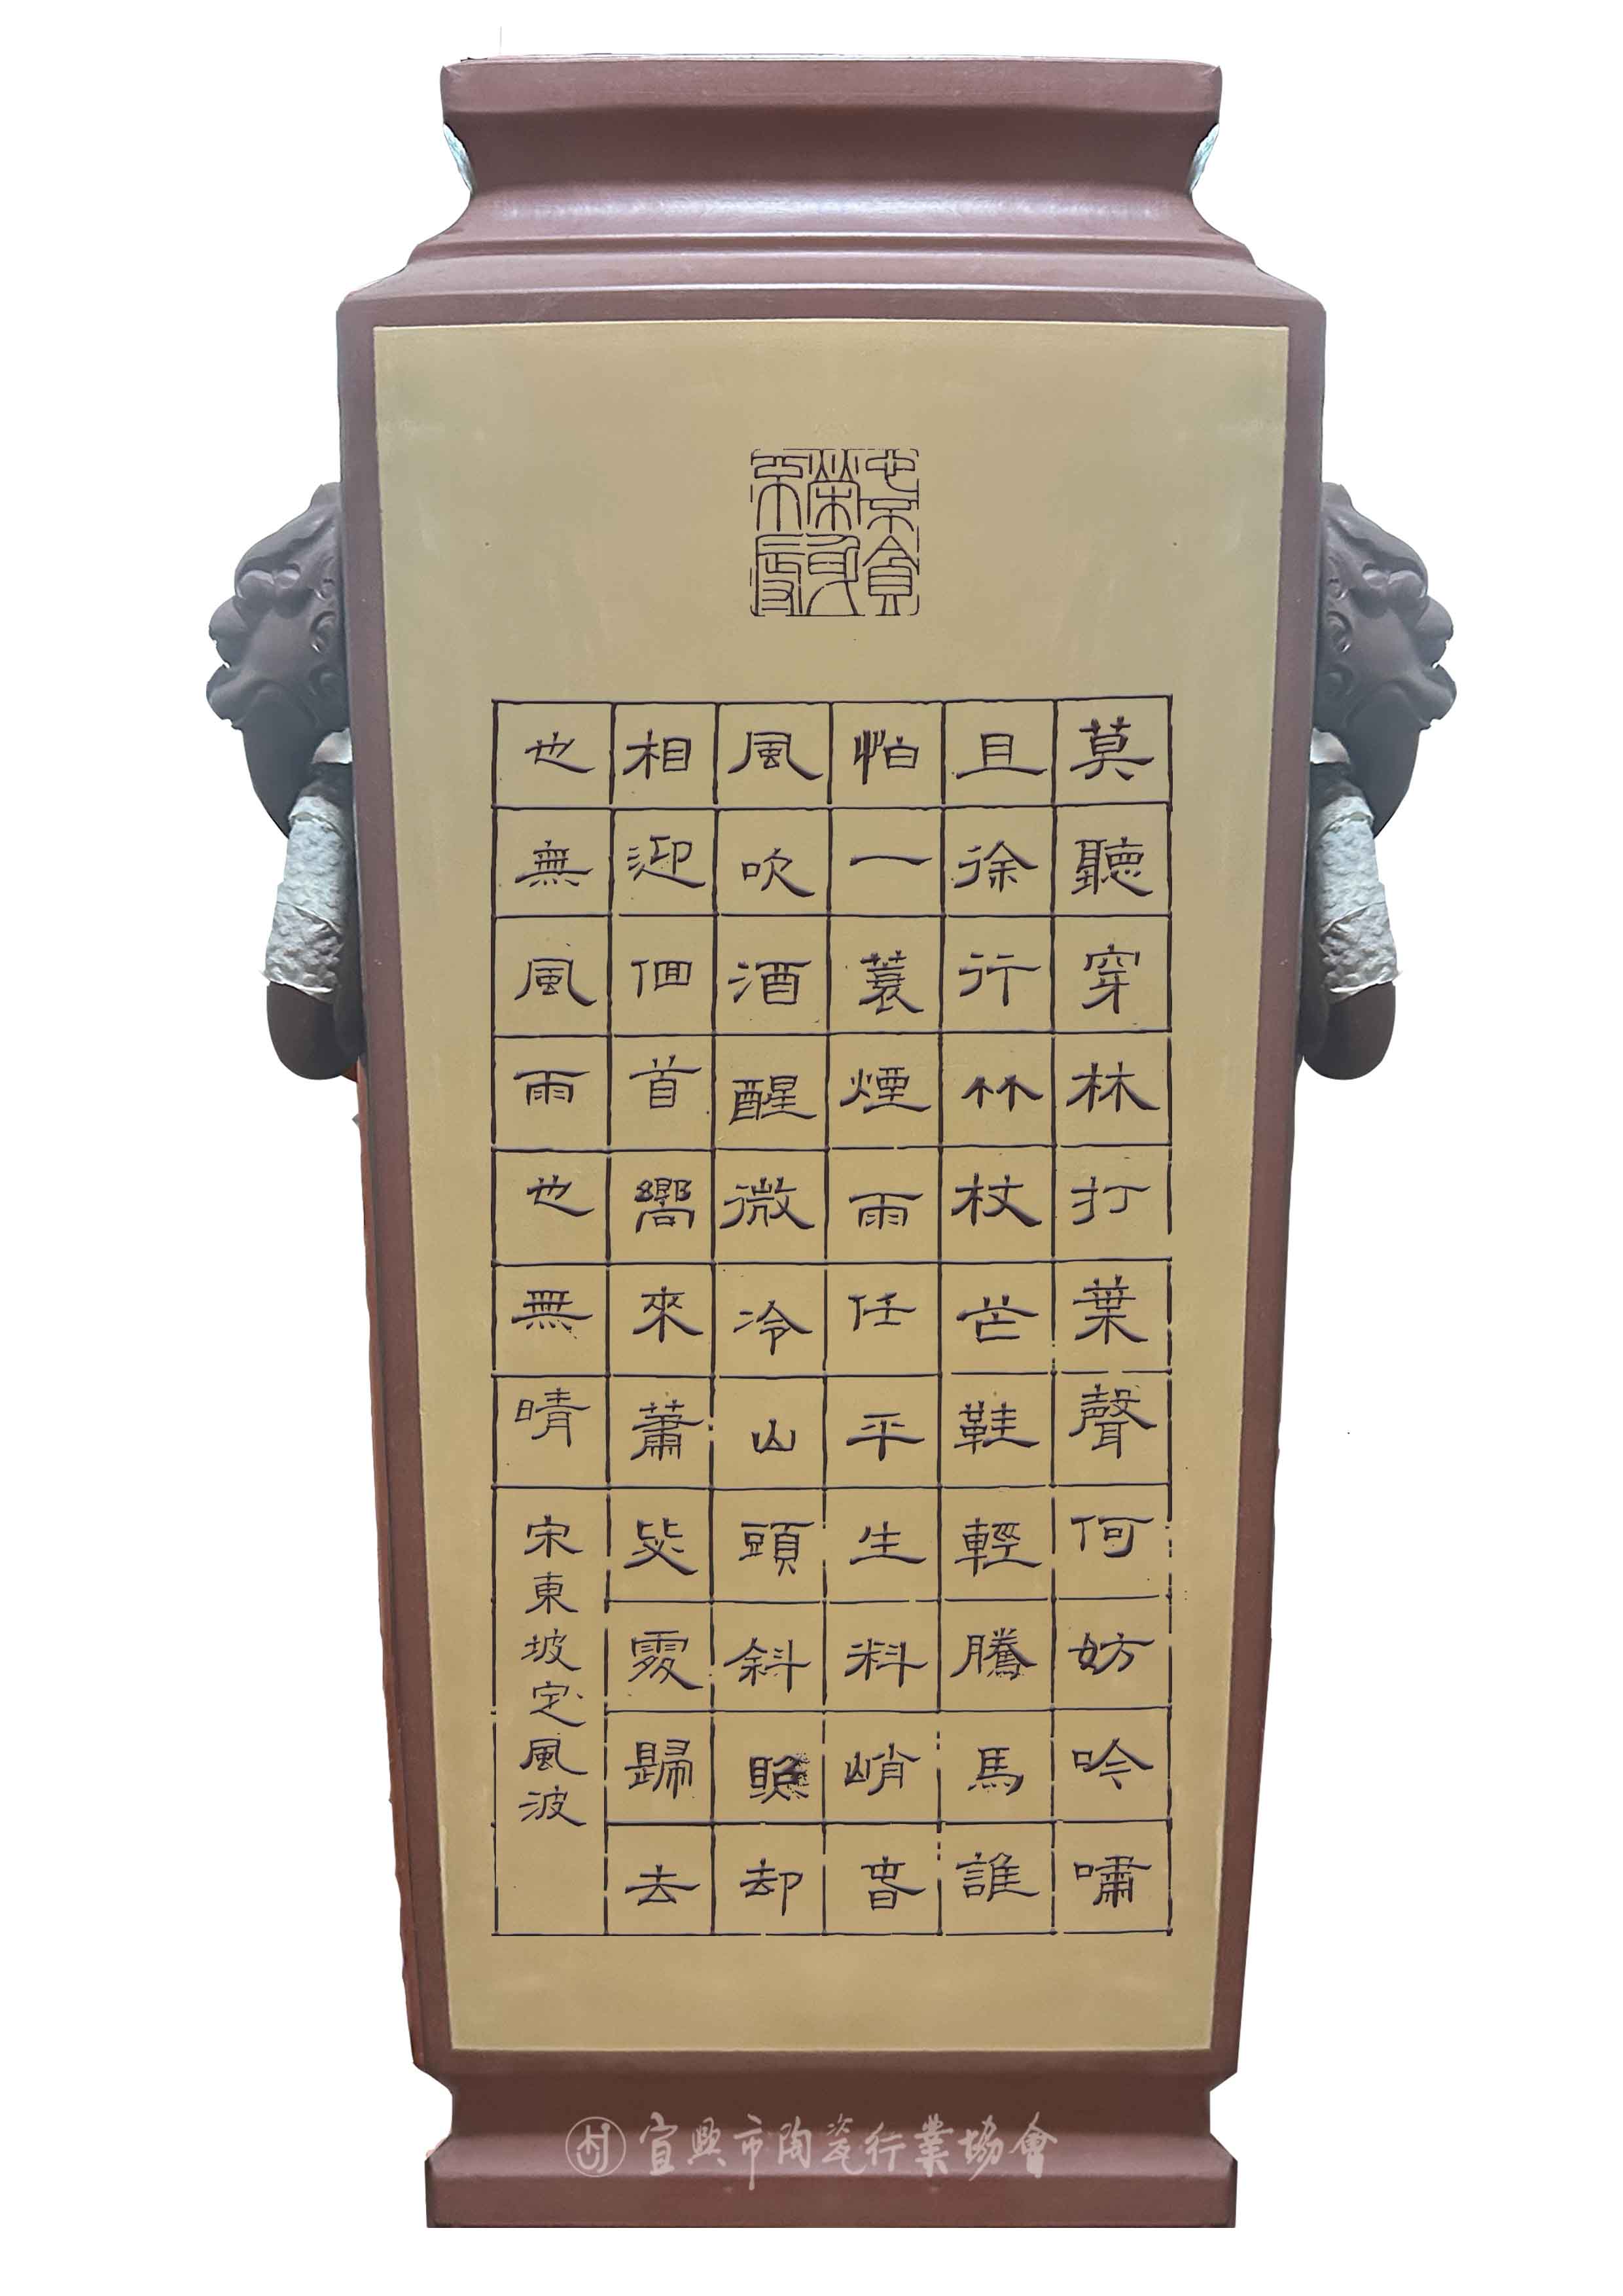 心不貪榮身不辱
莫聽穿林打葉聲何妨吟嘯
且徐行竹杖芒鞋輕騰馬誰
怕一蓑煙雨任平生料峭春
風吹酒醒微冷山頭斜照却
相迎佪首嚮來蕭瑟處歸去
也無風雨也無晴
宋東坡定風波
宜興市陶瓷行業協會